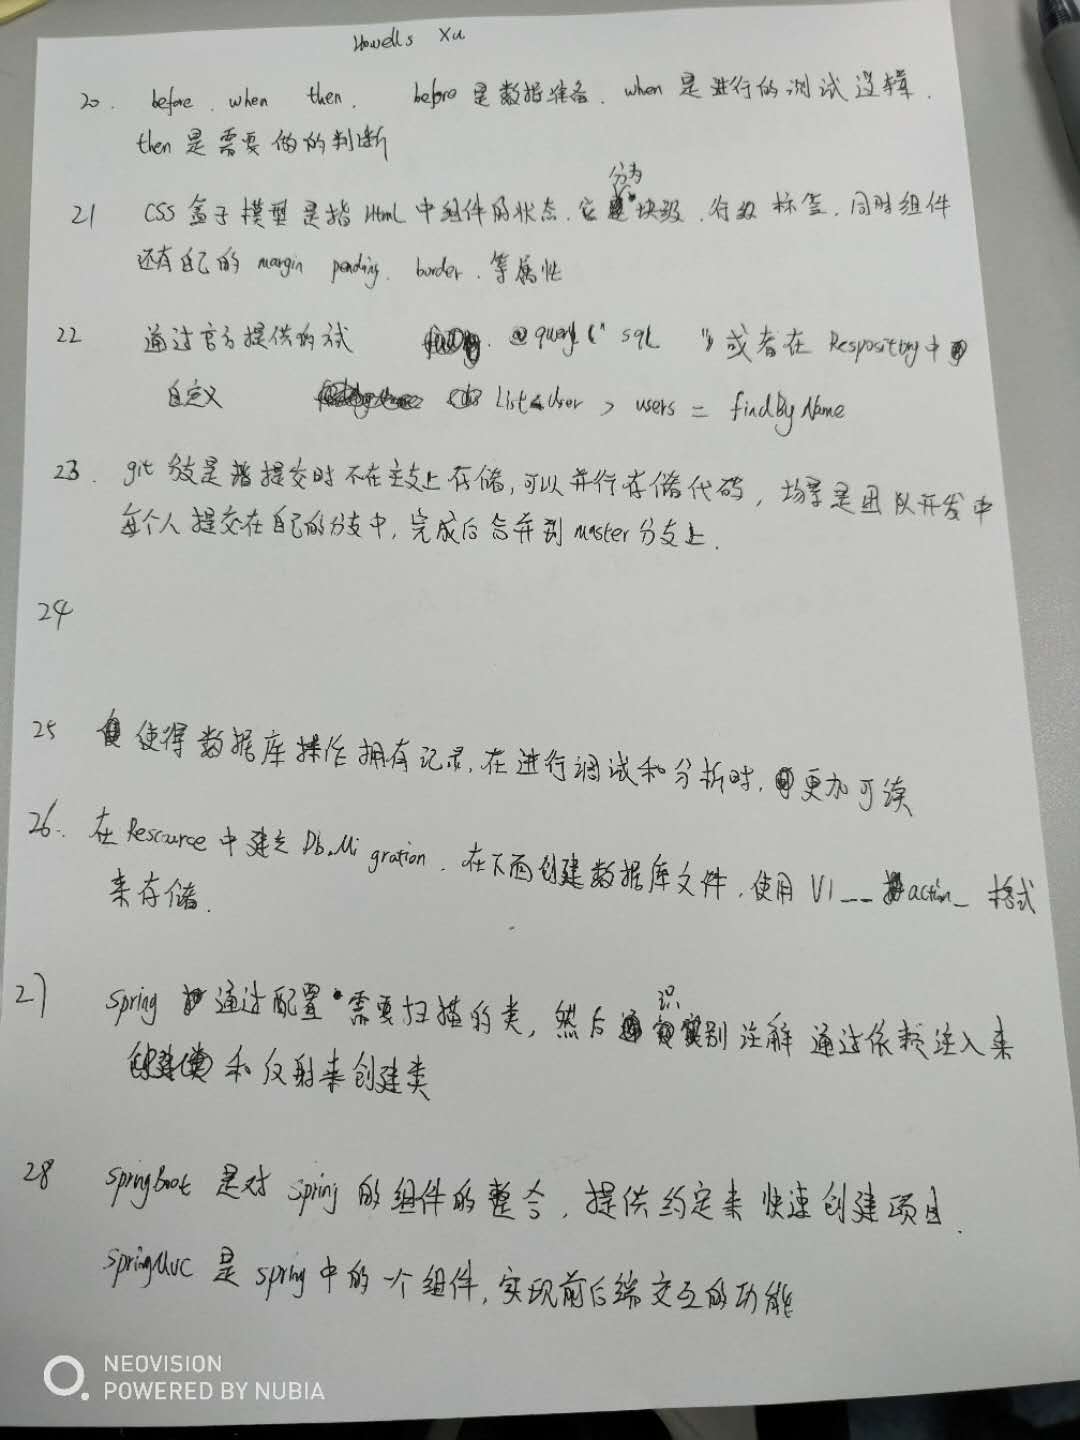 Howells Xu
20. before. when then. before是数据准备. when是进行的测试逻辑.
then是需要做的判断
分为
21 CSS盒子模型是指Html中组件的状态.它块级.行级标签.同时组件
还有自己的margin pending. border.等属性
22 通过官方提供的试 @query("sql ")或者在Respository中
自定义 List<User> users = findByName
23. git分支是指提交时不在主支上存储,可以并行存储代码,场景是团队开发中
每个人提交在自己的分支中,完成后合并到master分支上.
24
25 使得数据库操作拥有记录,在进行调试和分析时,更加可读
26. 在Rescource中建立Db.Migration.在下面创建数据库文件,使用V1__action_格式
来存储.
识
27 Spring通过配置需要扫描的类,然后别注解通过依赖注入来
和反射来创建类
28 SpringBoot是对Spring的组件的整合,提供约定来快速创建项目.
SpringMvc是spring中的一个组件,实现前后端交互的功能
NEOVISION
POWERED BY NUBIA